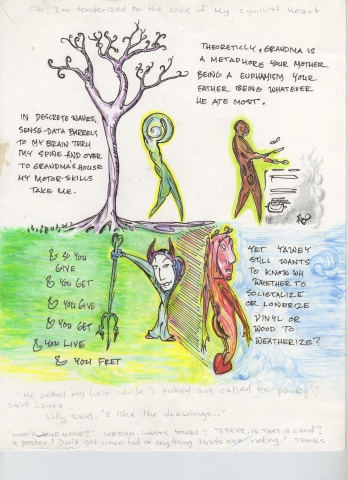 Oh, I'm tenderized to the core of my cynical heart
THEORETICLLY, GRANDMA IS
A METAPHORE YOUR MOTHER
BEING A EUPHAMISM YOUR
FATHER BEING WHATEVER
HE ATE MOST.
IN DESCRETE WAVES,
SENSE-DATA BARRELS
TO MY BRAIN THRU
MY SPINE AND OVER
TO GRANDMA'S HOUSE
MY MOTOR-SKILLS
TAKE ME.
& SO YOU
GIVE
& YOU GET
& YOU GIVE
& YOU GET
& YOU LIVE
& YOU FRET
YET YAWEY
STILL WANTS
TO KNOW WH
WHETHER TO
SOCIETALIZE
OR LONERIZE
VINYL OR
WOOD TO
WEATHERIZE?
"He petted my hair while I puked and called me pooky",
said Laura
Lilly said, "I like the drawings.."
"WHAT'S YOUR NAME?" JORDAN WHATS YOURS? "STEVE, IS THAT A CARD?
A poster? Don't get conceited or anything thats nice writing." Thanks